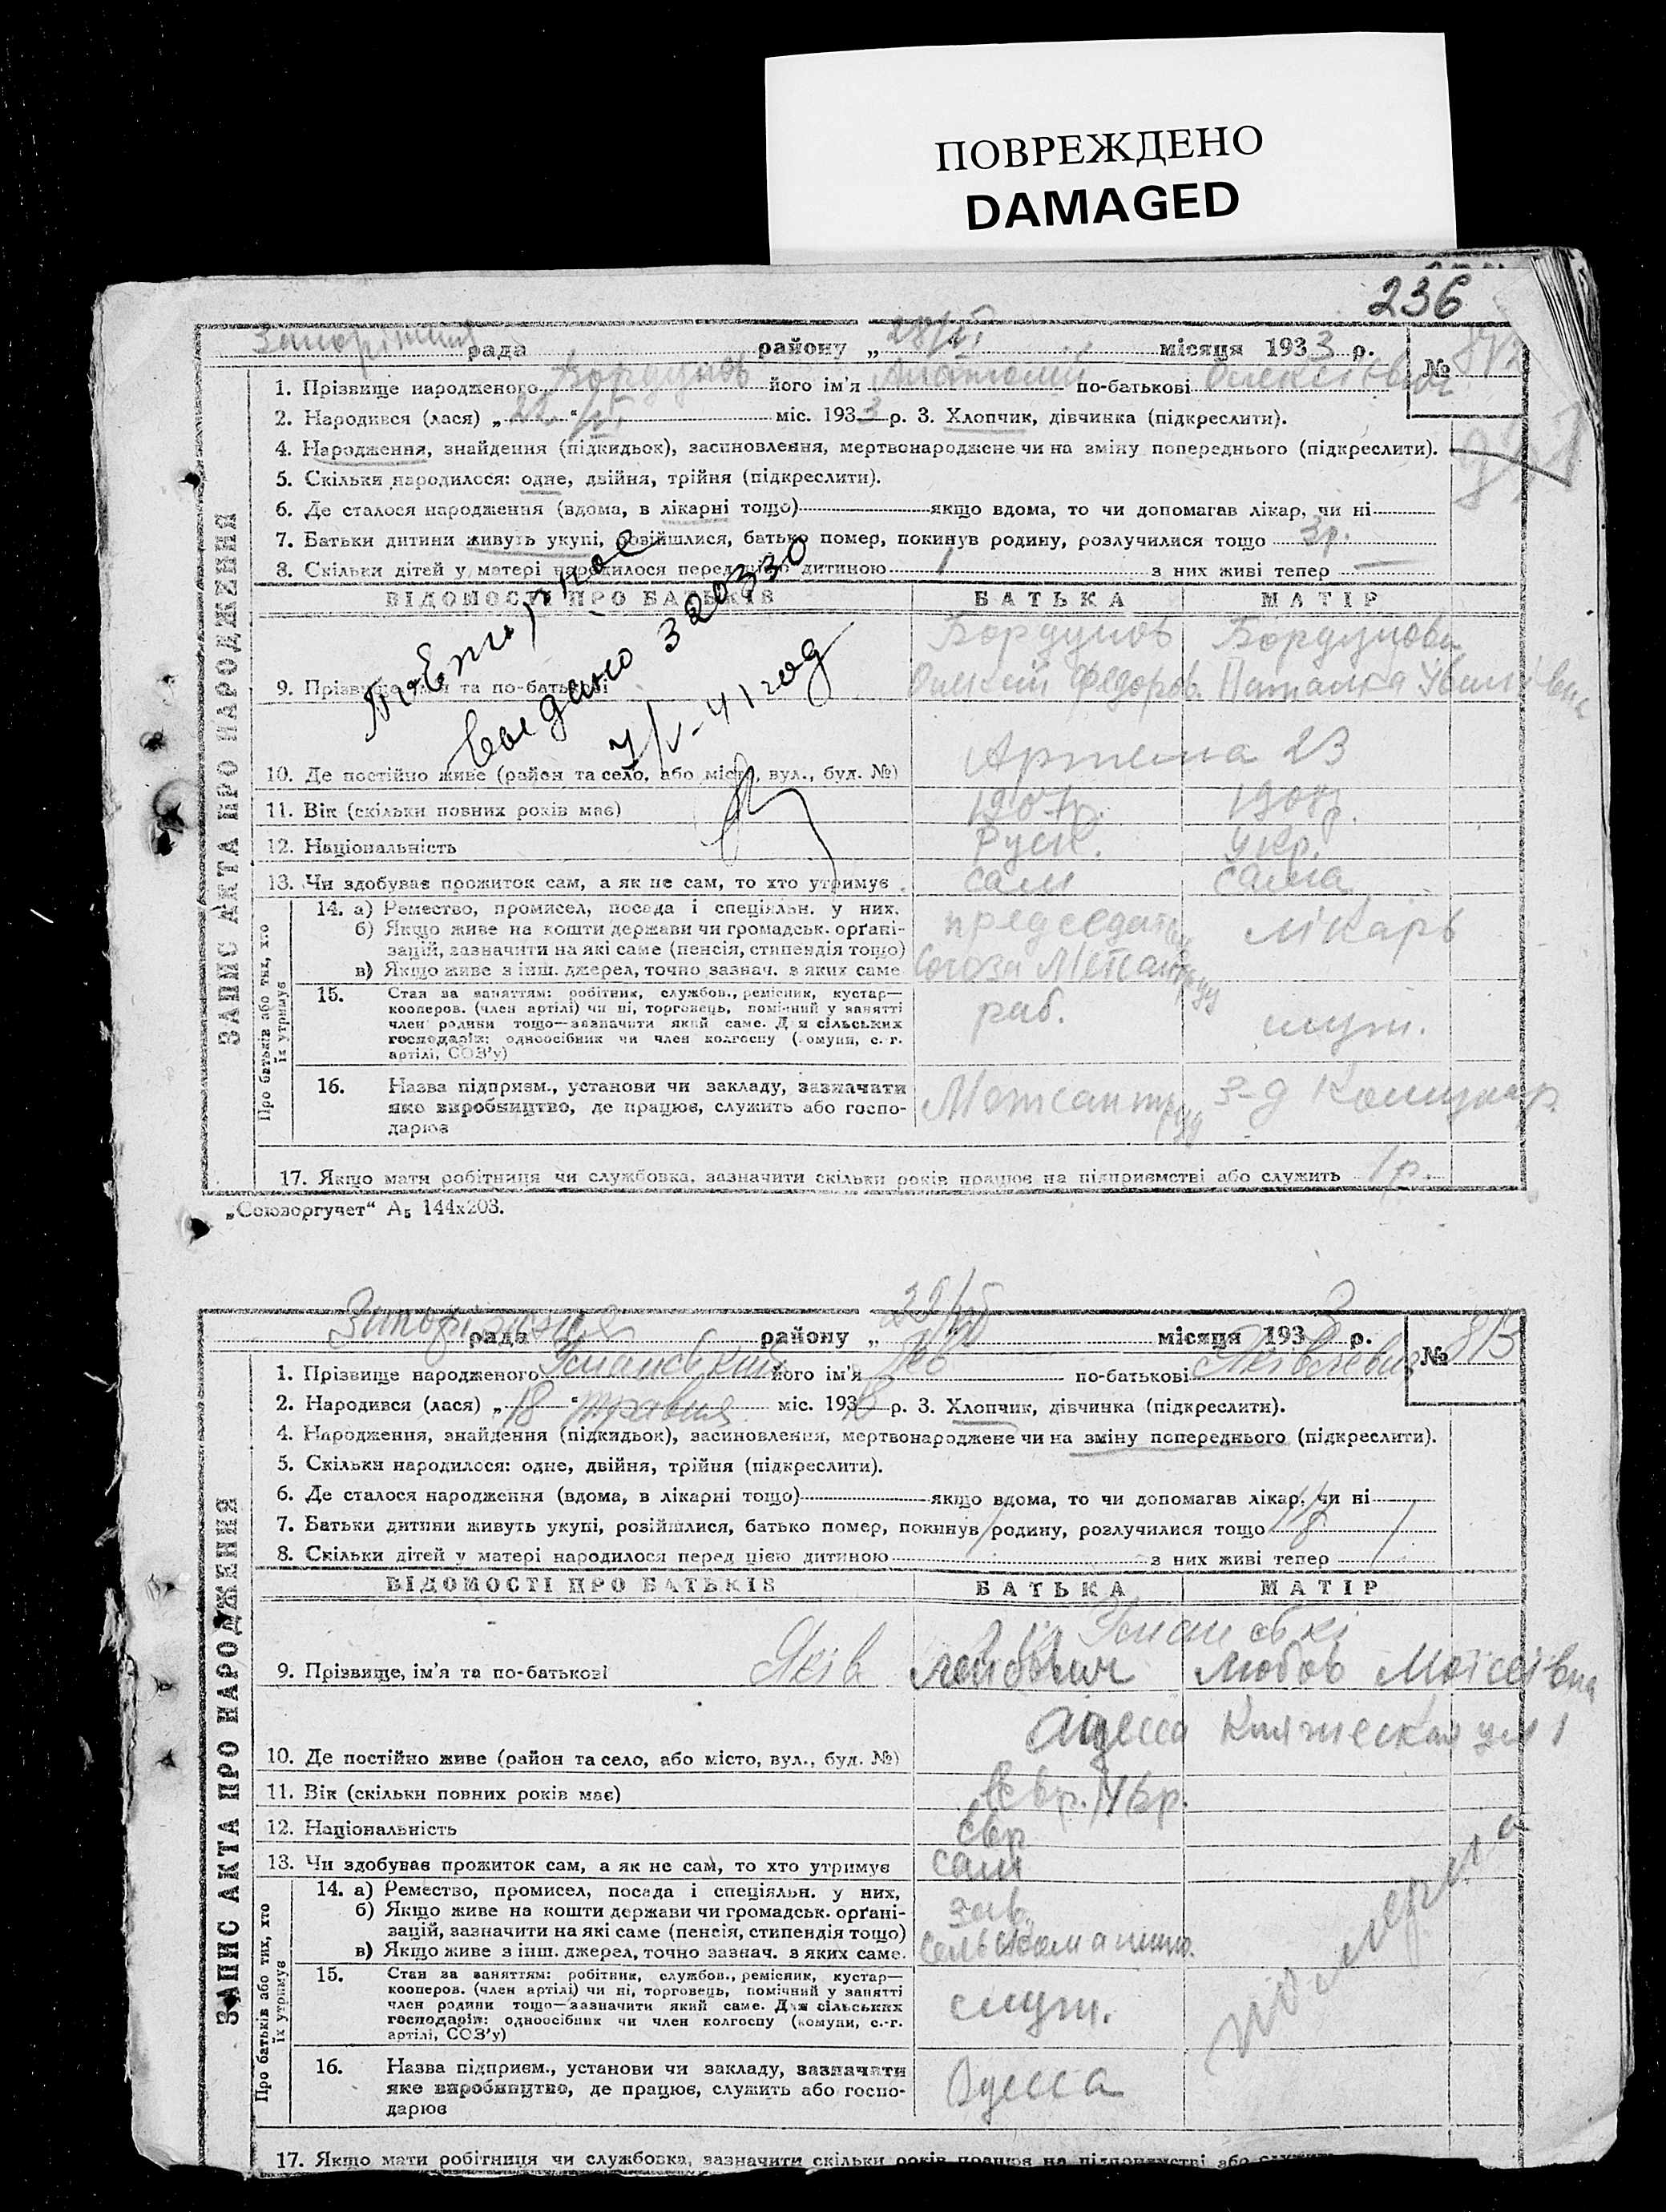 ПОВРЕЖДЕНО
DAMAGED
236
рада району „28/VI місяця 1933 р.
№
1. Прізвище народженого Бордунов його ім'я Анатолий по-батькові Олексієвич
2. Народився (лася) „22 “ VI міс. 1933 р. 3. Хлопчик, дівчинка (підкреслити).
4. Народження, знайдення (підкидьок), засиновлення, мертвонароджене чи на зміну попереднього (підкреслити).
5. Скільки народилося: одне, двійня, трійня (підкреслити).
6. Де сталося народження (вдома, в лікарні тощо) якщо вдома, то чи допомагав лікар, чи ні
7. Батьки дитини живуть укупі, розійшлися, батько помер, покинув родину, розлучилися тощо 3р.
8. Скільки дітей у матері народилося перед цією дитиною 1 з них живі тепер —
ВІДОМОСТІ ПРО БАТЬКІВ БАТЬКА МАТІР
Бордунов Бордунова
9. Прізвище, ім'я та по-батькові Федоров. Наталка
Повторное
выдано 320330
7/V-41 год
Артема 23
10. Де постійно живе (район та село, або місто, вул., буд. №)
11. Вік (скільки повних років має) 1907р. 1908р.
12. Національність Руск. Укр.
13. Чи здобуває прожиток сам, а як не сам, то хто утримує сам сама
14. а) Ремество, промисел, посада і спеціяльн. у них.
б) Якщо живе на кошти держави чи громадськ. орґані-
зацій, зазначити на які саме (пенсія, стипендія тощо)
в) Якщо живе з інш. джерел, точно зазнач. з яких саме
председатель лікарь
Союза Метсантруд
15. Стан за заняттям: робітник, службов., ремісник, кустар—
кооперов. (член артілі) чи ні, торговець, помічний у занятті
член родини тощо—зазначити який саме. Для сільських
господарів: одноосібник чи член колгоспу (комуни, с.-г.
артілі, СОЗ'у)
раб. служ.
16. Назва підприєм., установи чи закладу, зазначати
яке виробництво, де працює, служить або госпо-
дарює
Метсантруд З-д Комунар.
17. Якщо мати робітниця чи службовка, зазначити скільки років працює на підприємстві або служить 1р.
ЗАПИС АКТА ПРО НАРОДЖЕННЯ
Про батьків або тих, хто
їх утримує
„Союзоргучет“ А5 144х203.
рада району „ місяця 193 р.
№ 813
1. Прізвище народженого Уманський його ім'я по-батькові Яківлевич
2. Народився (лася) „18 “ травня міс. 193 р. 3. Хлопчик, дівчинка (підкреслити).
4. Народження, знайдення (підкидьок), засиновлення, мертвонароджене чи на зміну попереднього (підкреслити).
5. Скільки народилося: одне, двійня, трійня (підкреслити).
6. Де сталося народження (вдома, в лікарні тощо) якщо вдома, то чи допомагав лікар, чи ні
7. Батьки дитини живуть укупі, розійшлися, батько помер, покинув родину, розлучилися тощо
8. Скільки дітей у матері народилося перед цією дитиною з них живі тепер
ВІДОМОСТІ ПРО БАТЬКІВ БАТЬКА МАТІР
Уманські
9. Прізвище, ім'я та по-батькові Яків Любов Моїсеівна
Одесса
10. Де постійно живе (район та село, або місто, вул., буд. №)
11. Вік (скільки повних років має)
12. Національність Євр
13. Чи здобуває прожиток сам, а як не сам, то хто утримує сам
14. а) Ремество, промисел, посада і спеціяльн. у них,
б) Якщо живе на кошти держави чи громадськ. орґані-
зацій, зазначити на які саме (пенсія, стипендія тощо)
в) Якщо живе з інш. джерел, точно зазнач. з яких саме.
зав.
15. Стан за заняттям: робітник, службов., ремісник, кустар—
кооперов. (член артілі) чи ні, торговець, помічний у занятті
член родини тощо—зазначити який саме. Для сільських
господарів: одноосібник чи член колгоспу (комуни, с.-г.
артілі, СОЗ'у)
служ.
16. Назва підприєм., установи чи закладу, зазначати
яке виробництво, де працює, служить або госпо-
дарює
Одесса
17. Якщо мати робітниця чи службовка, зазначити скільки років працює на підприємстві або служить
ЗАПИС АКТА ПРО НАРОДЖЕННЯ
Про батьків або тих, хто
їх утримує